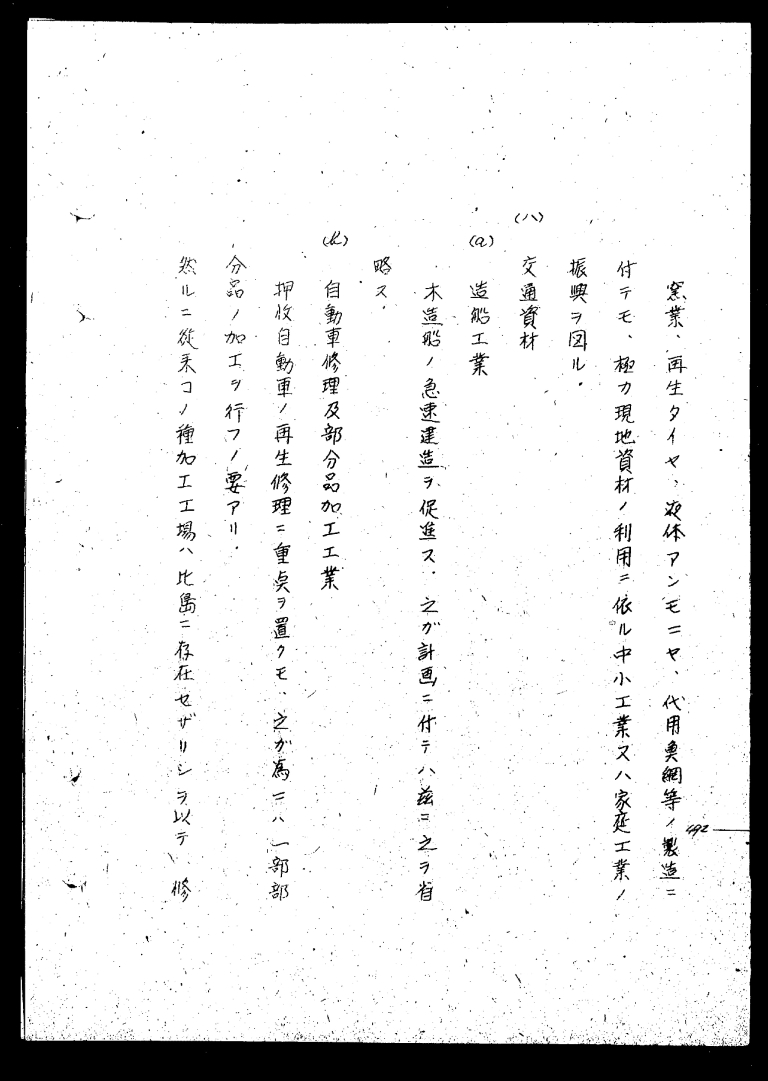 窯業、再生タイヤ、液体アンモニヤ、代用魚網等ノ製造ニ
付テモ、極力現地資材ノ利用ニ依ル中小工業又ハ家庭工業ノ
振興ヲ図ル.
(ハ) 交通資材
(a) 造船工業
木造船ノ急速建造ヲ促進ス. 之ガ計画ニ付テハ茲ニ之ヲ省
略ス.
(b) 自動車修理及部分品加工工業
押收自動車ノ再生修理ニ重点ヲ置クモ、之ガ為ニハ一部部
分品ノ加工ヲ行フノ要アリ.
然ルニ從来コノ種加工工場ハ比島ニ存在セザリシヲ以テ 修
492